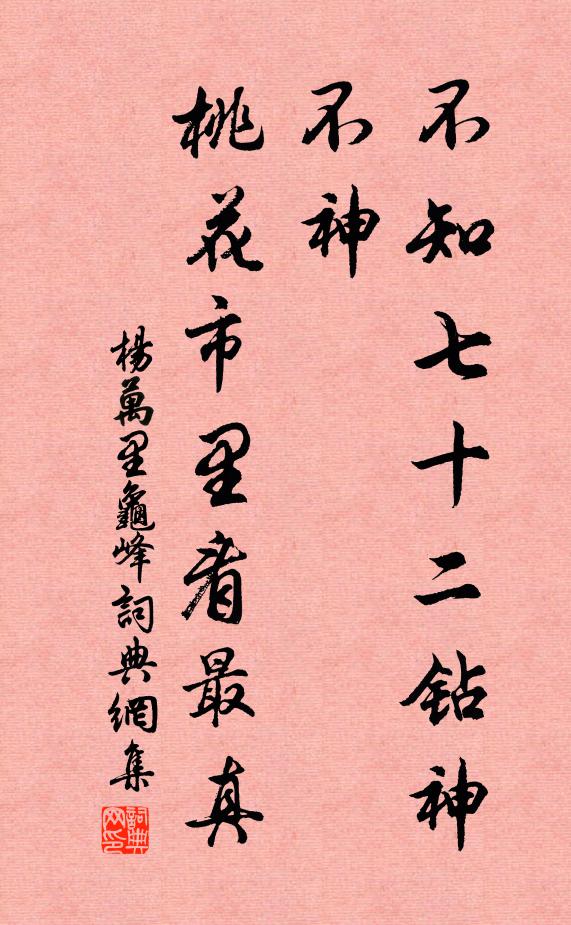 不知七十二钻神
不神
桃花市里看最真
楊萬里龜峰詞典網集
詞典网印